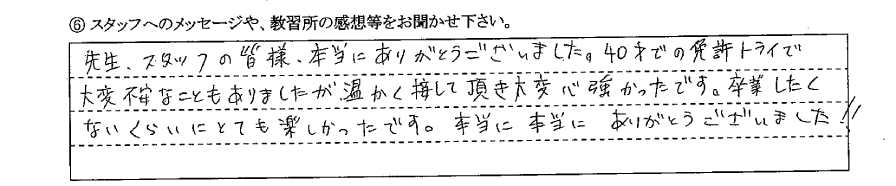 ⑥ スタッフへのメッセージや、教習所の感想等をお聞かせ下さい。
先生、スタッフの皆様、本当にありがとうございました。40才での免許トライで
大変不安なこともありましたが温かく接して頂き大変心強かったです。卒業したく
ないくらいにとても楽しかったです。本当に本当に ありがとうございました!!